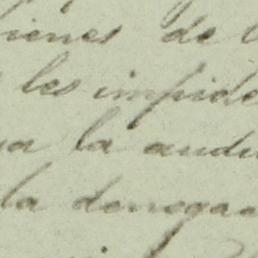 ienes de
les impide
la audi
la denega